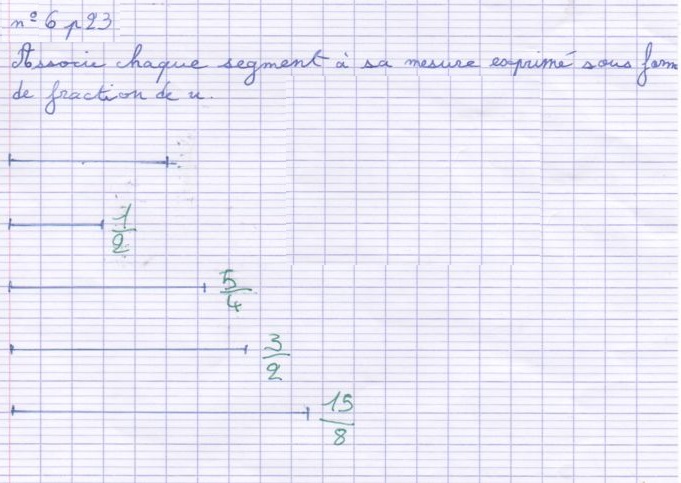 n° 6 p 23
Associe chaque segment à sa mesure exprimé sous form
de fraction de u.
1/2
5/4
3/2
15/8